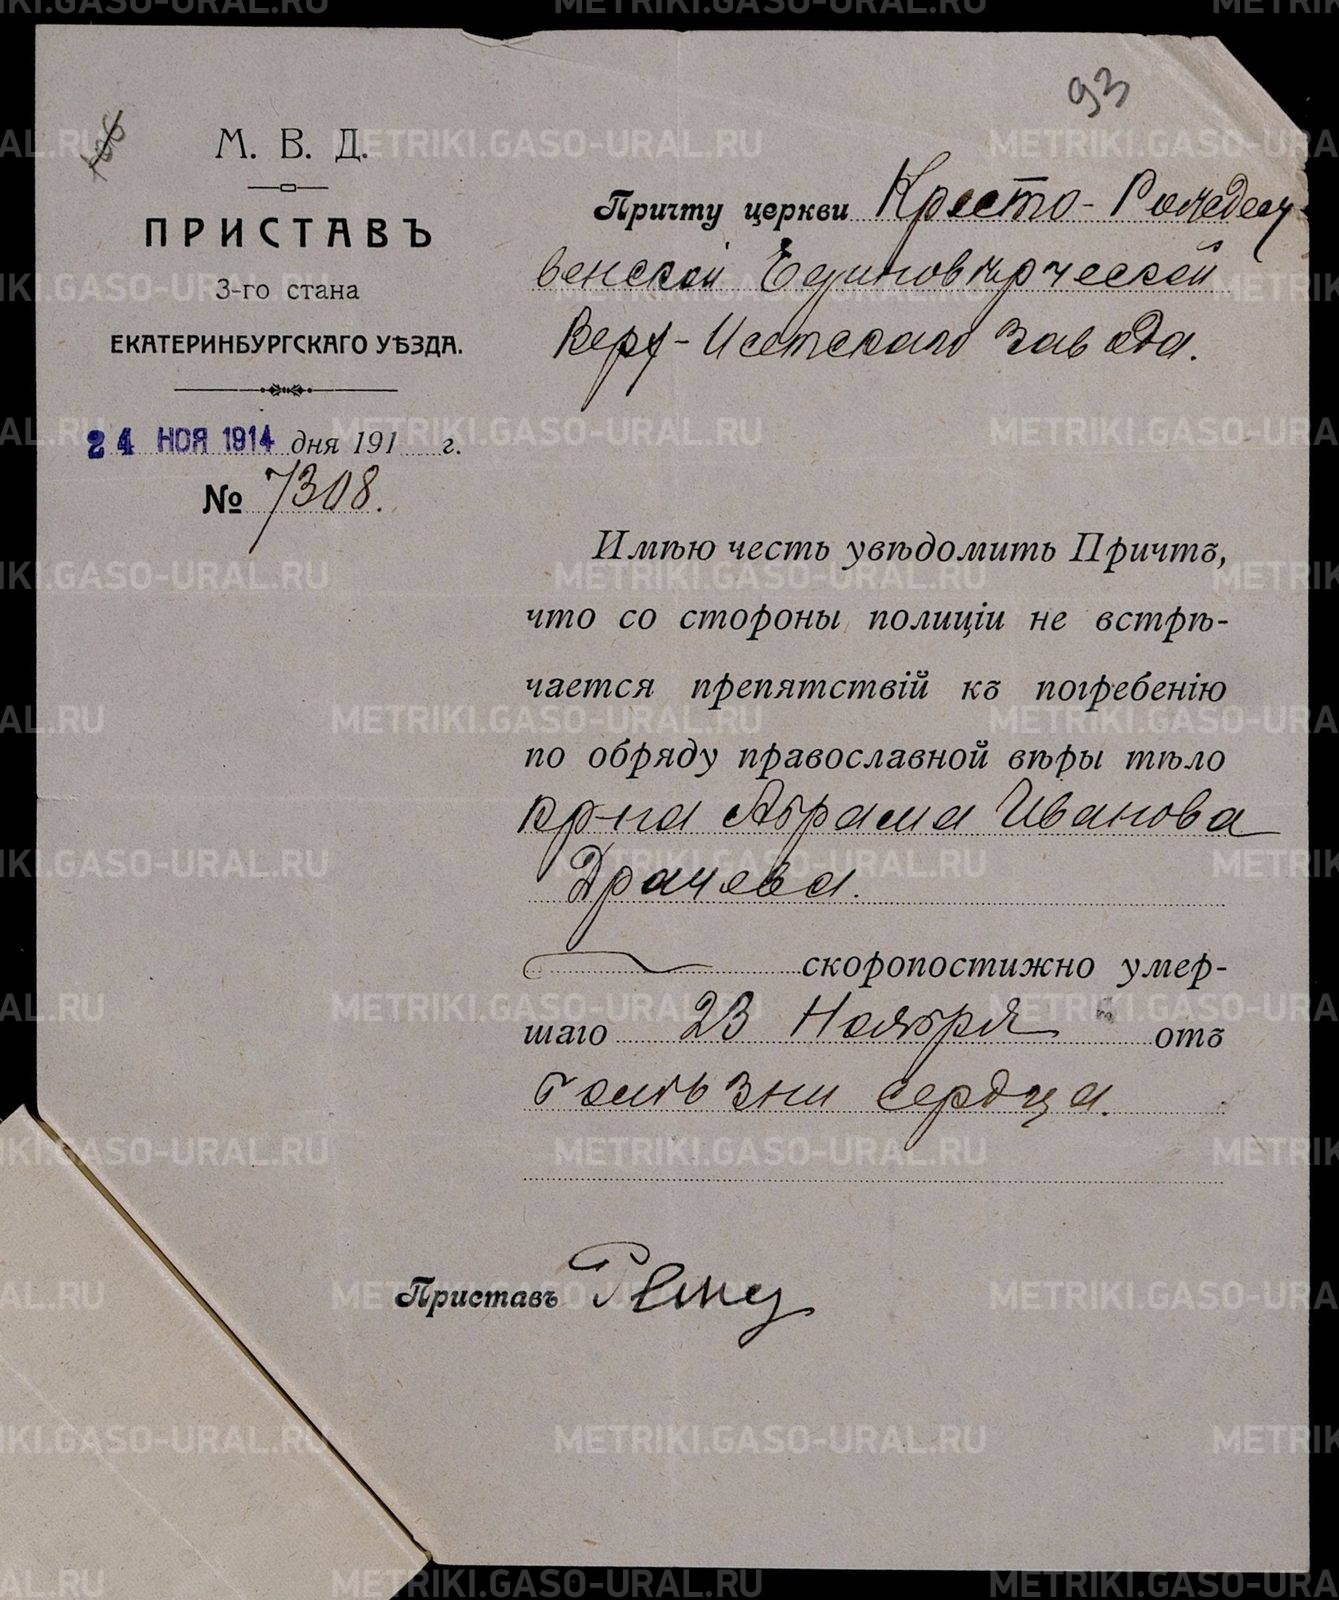 93
М. В. Д.
ПРИСТАВЪ
3-го стана
ЕКАТЕРИНБУРГСКАГО УѢЗДА.
24 НОЯ 1914 дня 191 г.
№ 7308.
Причту церкви Кресто-Рождест-
венской Единовѣрческой
Верх-Исетскаго завода.
Имѣю честь увѣдомить Причтъ,
что со стороны полиціи не встрѣ-
чается препятствій къ погребенію
по обряду православной вѣры тѣло
кр-на Абрама Иванова
Драчева.
скоропостижно умер-
шаго 23 Ноября отъ
болѣзни сердца.
Приставъ
METRIKI.GASO-URAL.RU